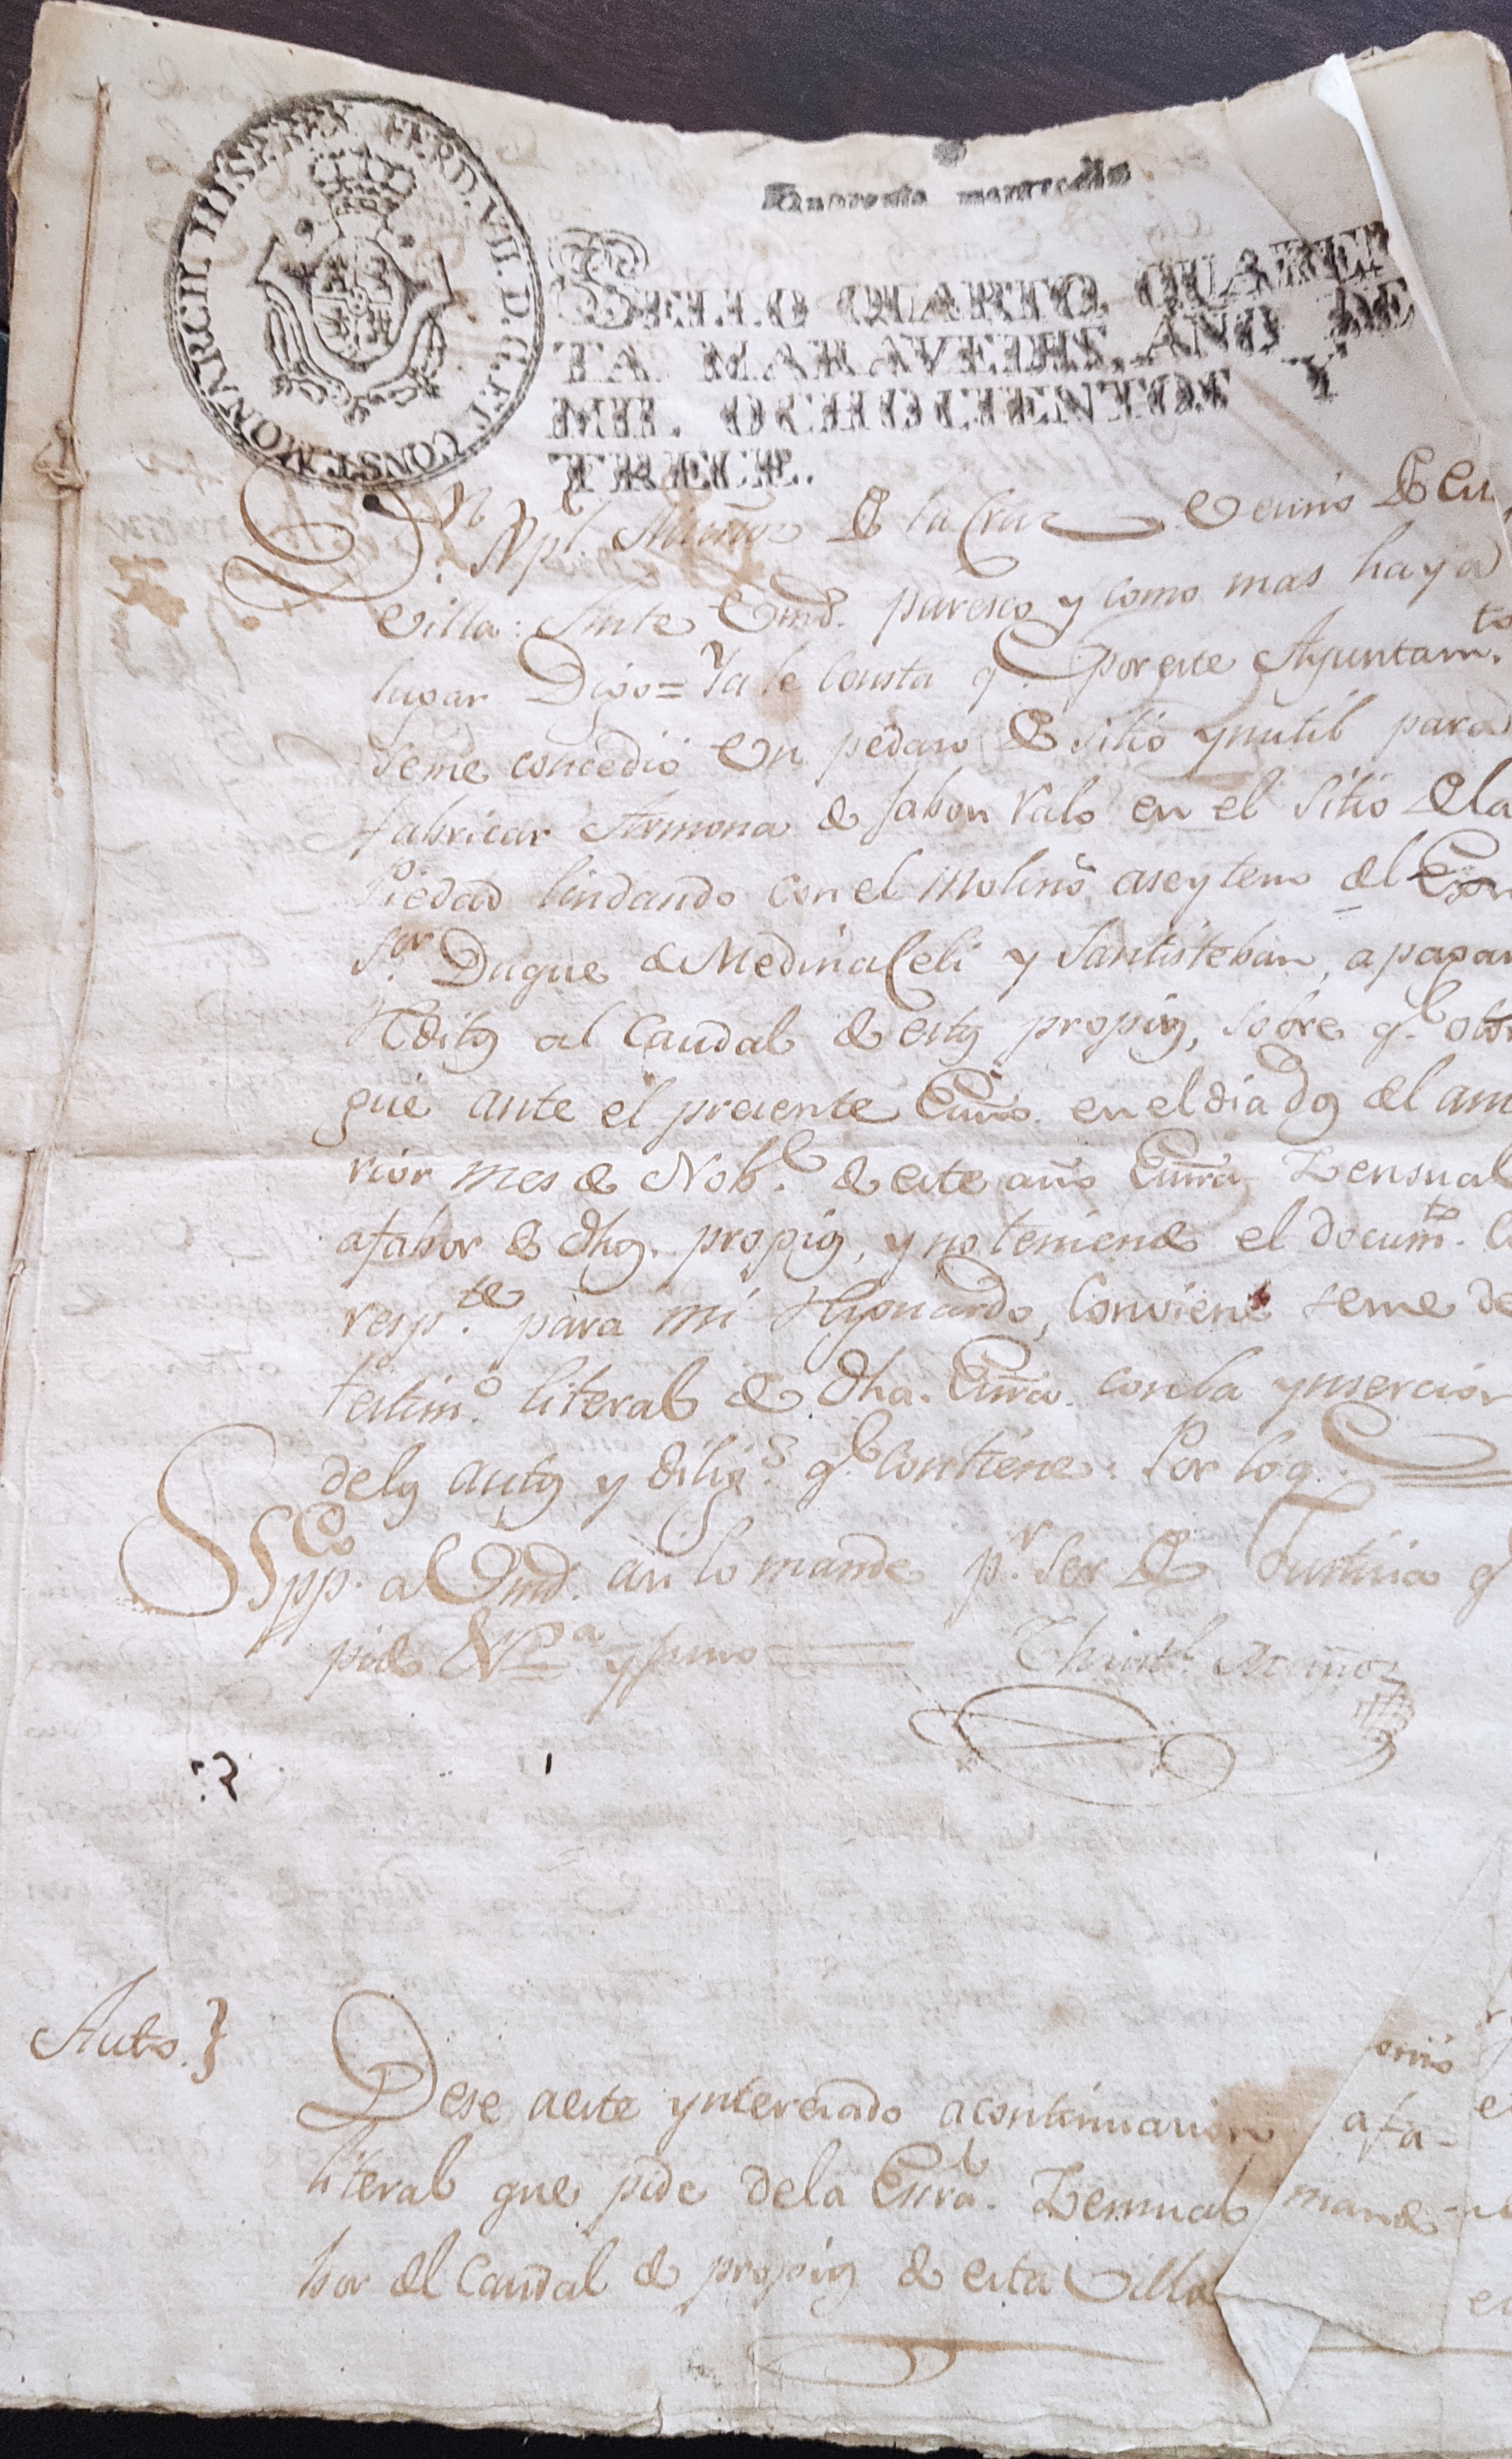 FERD. VII. D. G. ET CONST. MONARCH. HISP. REX
Quarenta maravedis
SELLO QUARTO, QUAREN
TA MARAVEDIS, AÑO DE
MIL OCHOCIENTOS Y
TRECE.
Dn. Xpl. Muñoz de la Cruz Vecino de
villa: Ante Vmd. paresco y como mas haya
lugar Digo = Ya le consta q. por este Ayuntam.to
seme concedió un pedaso de sitio ynutil para
fabricar Armona de Jabon ralo en el sitio dela
Piedad lindando con el Molino aseytero del
Sor. Duque de MedinaCeli y Santisteban, a pagar
Reditos al Caudal de estos propios, sobre qe.
gué ante el presente Essno. en el dia dos del
rior mes de Nobe. de este año Essra. Zensual
afabor de dhos. propios, y no teniendo el docum.to
resp.te para mi resguardo, conviene seme
testim.o literal de dha. Essra. con la ynsercion
delos autos y dilig.s qe. contiene. Por lo q.
Sup.co a Vmd. asi lo mande pr. ser de Justicia q
pido Vª. y juro
Christl. Muñoz
Auto.}
Dese aeste ynteresado acontinuacion
literal que pide dela Essra. Zensual
afa-
bor del Caudal de propios de esta Villa
mando